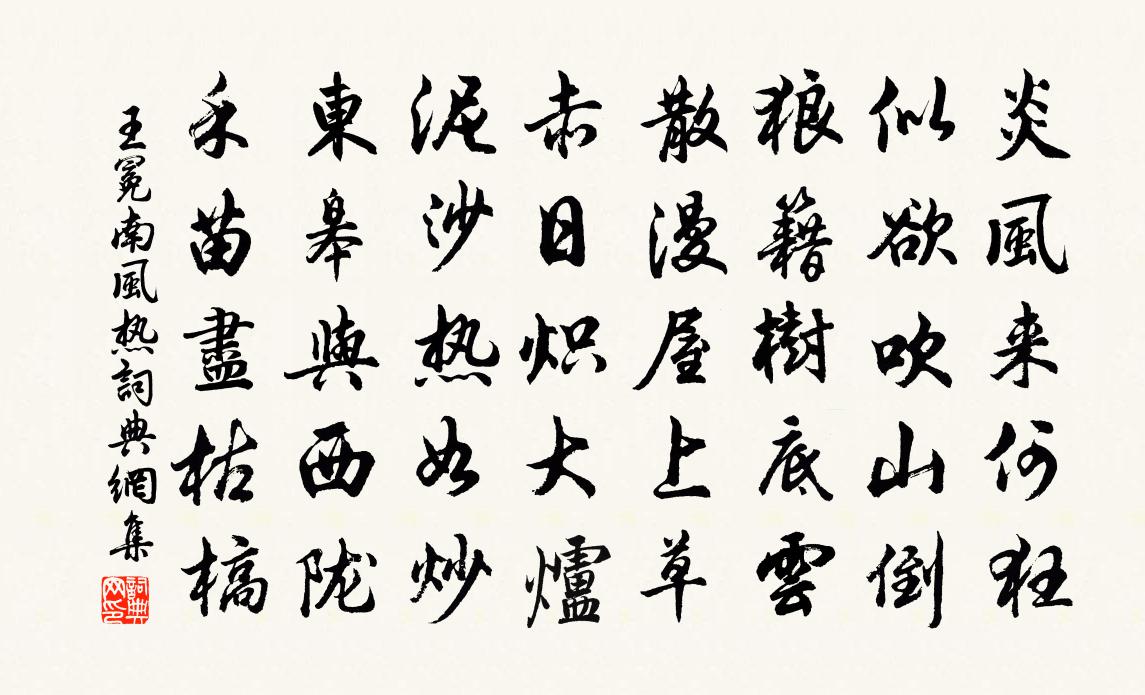 炎風来何狂
似欲吹山倒
狼籍樹底雲
散漫屋上草
赤日炽大爐
泥沙热如炒
東皋與西陇
禾苗盡枯槁
王冕南風热詞典網集
詞典网印